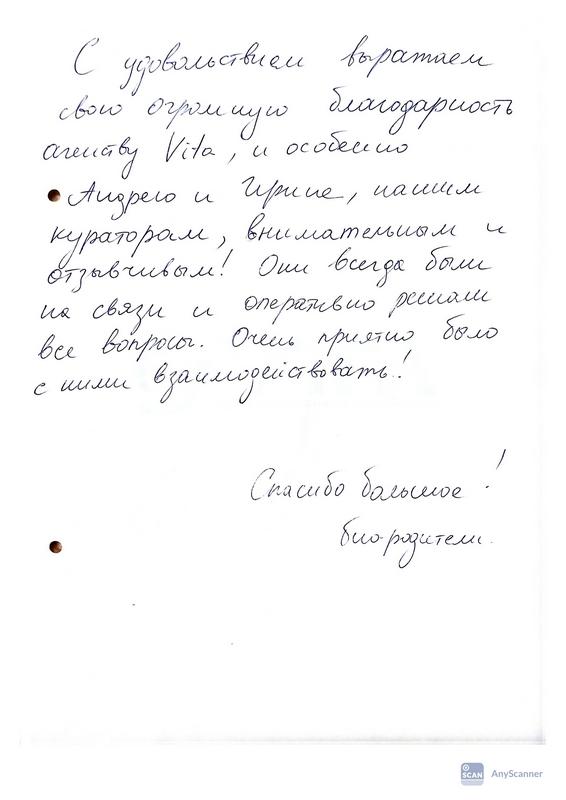 С удовольствием выражаем
свою огромную благодарность
агенству Vita, и особенно
Андрею и Ирине, нашим
кураторам, внимательным и
отзывчивым! Они всегда были
на связи и оперативно решали
все вопросы. Очень приятно было
с ними взаимодействовать!
Спасибо большое!
био-родители.
SCAN AnyScanner